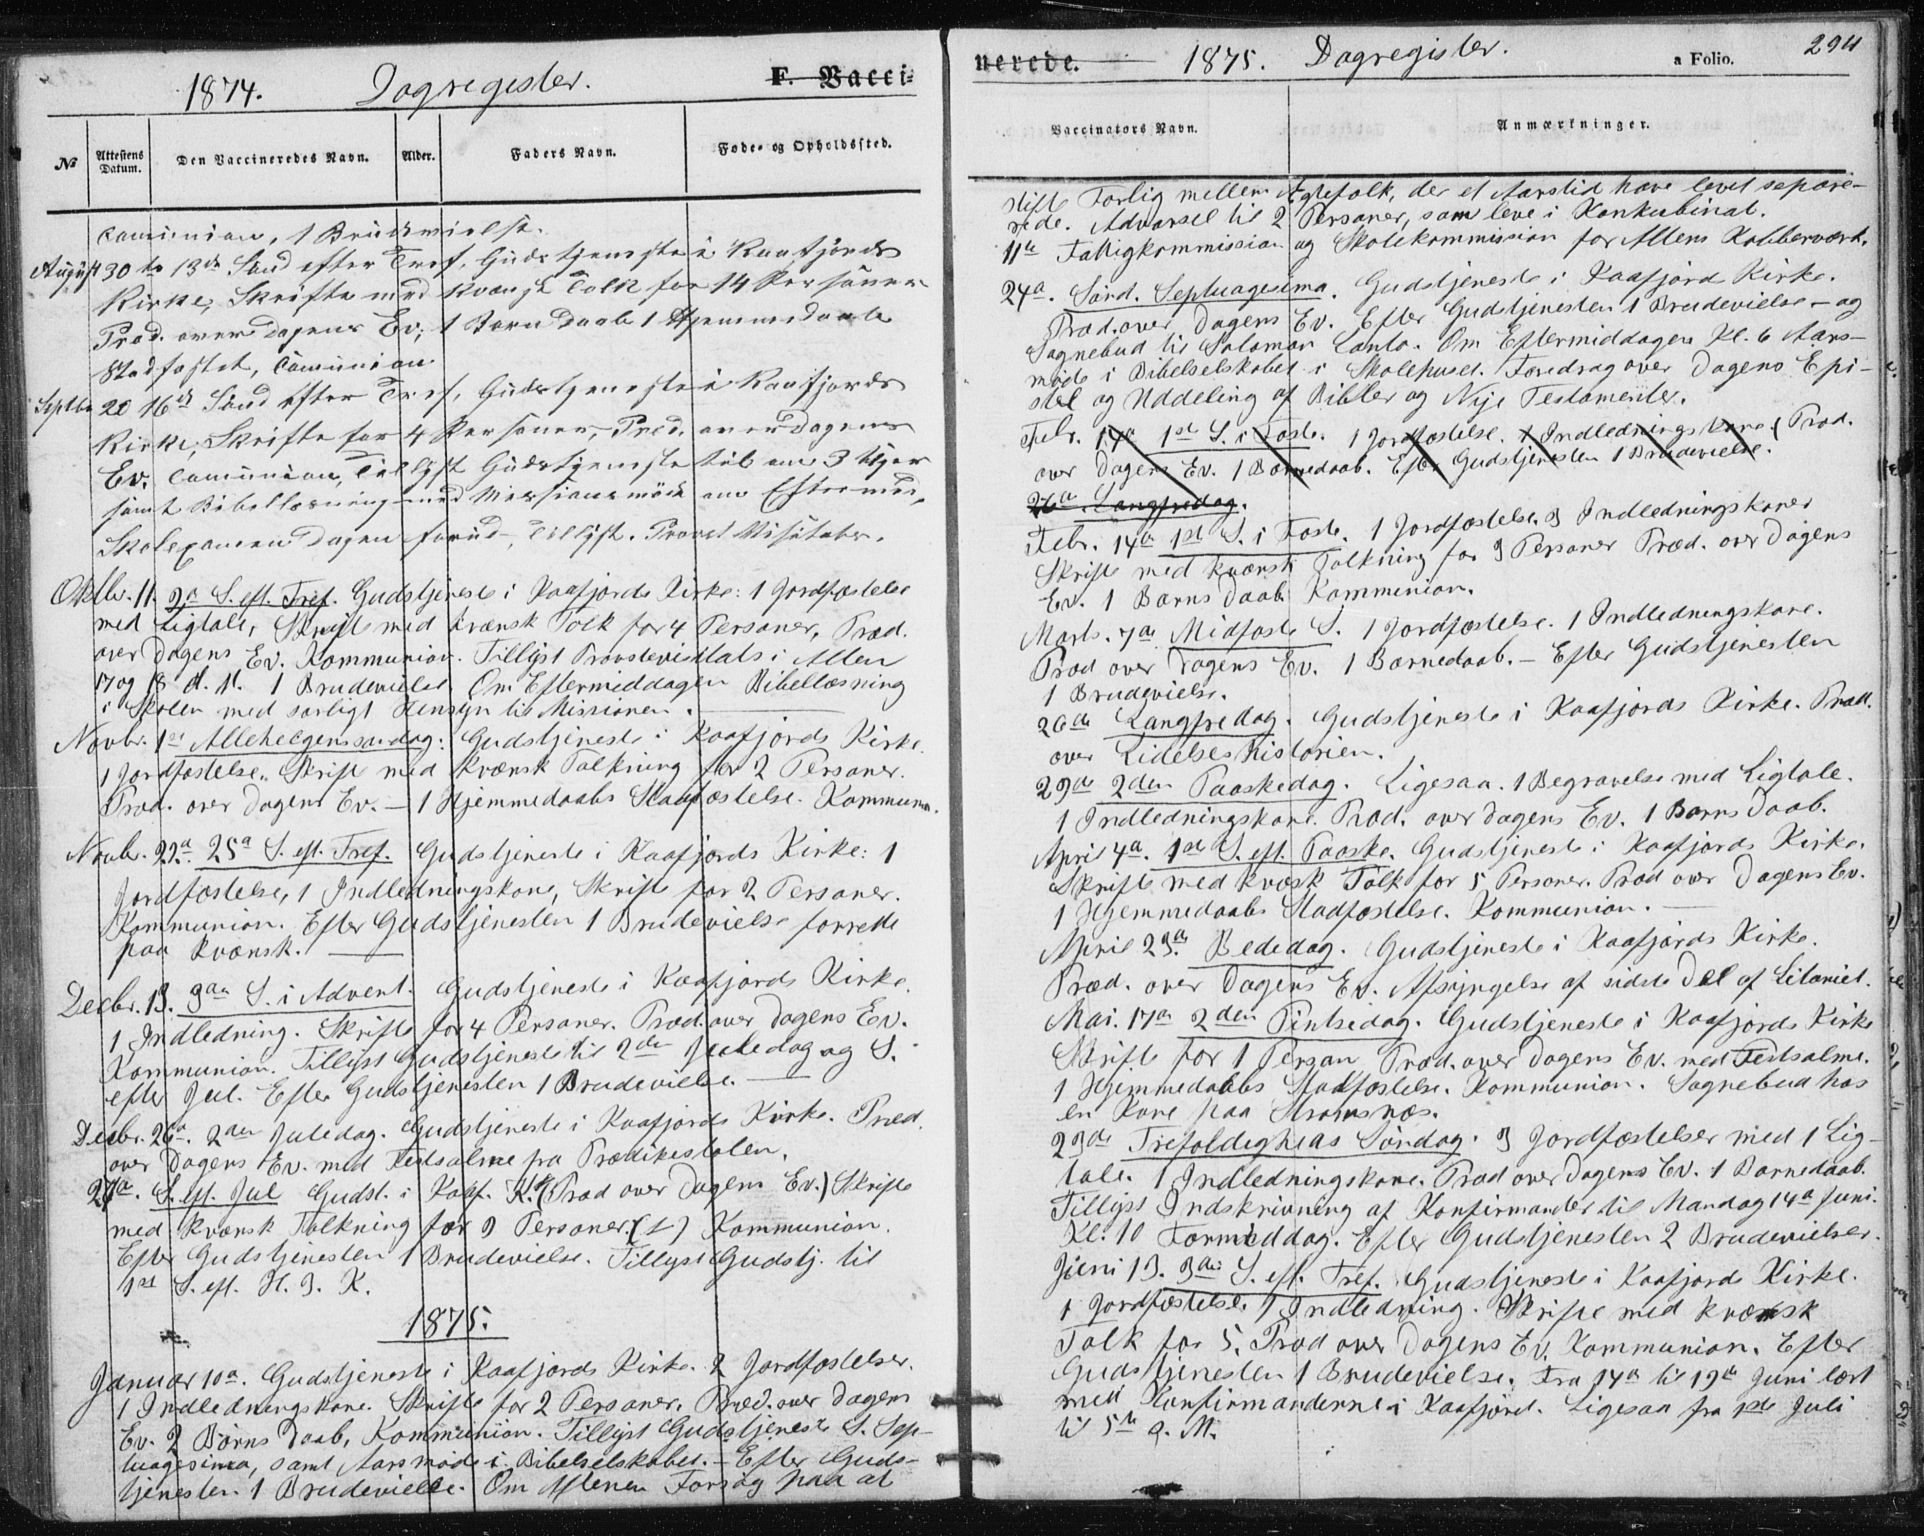 1874. Dagregister. F. Vacci-
No Attestens Datum. Den Vaccineredes Navn. Alder. Faders Navn. Føde- og Opholdssted.
Comunion, 1 Brudevielse.
August 30te 13de Sønd efter Tref. Gudstjeneste i Kaafjords
Kirke, Skrifte med kvænsk Tolk for 14 Personer
Præd. over Dagens Ev; 1 Barn Daab 1 Hjemmedaab
Stadfæstet, Comunion
Septbr 20 16de Sønd efter Tref, Gudstjeneste i Kaafjords
Kirke, Skrifte for 4 Personer, Præd. over Dagens
Ev. Comunion, Tillyst Gudstjeneste til om 3 Uger
samt Bibellæsning med Missionsmöde om Eftermid.
Skolexamen Dagen forud, tillyst. Provst Visitats.
Oktbr. 11. 19a S. eft. Tref. Gudstjeneste i Kaafjords Kirke: 1 Jordfæstelse
med Ligtale, Skrifte med kvænsk Tolk for 4 Personer, Præd.
over Dagens Ev. Kommunion. Tillyst Provstevisitats i Alten
17 og 18 d. M. 1 Brudevielse. Om Eftermiddagen Bibellæsning
i Skolen med særligt Hensyn til Missionen.
Novbr. 1ste Allehelgenssøndag: Gudstjeneste i Kaafjords Kirke.
1 Jordfæstelse. Skrifte med kvænsk Tolkning for 2 Personer.
Præd. over Dagens Ev. — 1 Hjemmedaabs Stadfæstelse. Kommunn.
Novbr. 22a. 25a S. eft. Tref. Gudstjeneste i Kaafjords Kirke: 1
Jordfæstelse, 1 Indledningskone, Skrifte for 2 Personer.
Kommunion. Efter Gudstjenesten 1 Brudevielse forrett
paa kvænsk.
Decbr. 13. 3die S. i Advent. Gudstjeneste i Kaafjords Kirke.
1 Indledning. Skrifte for 4 Personer. Præd. over Dagens Ev.
Kommunion. Tillyst Gudstjeneste til 2den Juledag og S.
efter Jul. Efter Gudstjenesten 1 Brudevielse.
Decbr. 26a. 2den Juledag. Gudstjeneste i Kaafjords Kirke. Præd.
over Dagens Ev. med Festsalme fra Prædikestolen.
27a. S. eft. Jul Gudst. i Kaaf. K. (Præd over Dagens Ev.) Skrifte
med kvænsk Tolkning for 9 Personer. Kommunion.
Efter Gudstjenesten 1 Brudevielse. Tillyst Gudstj. til
1ste S. eft. H. 3. K.
1875.
Januar 10a. Gudstjeneste i Kaafjords Kirke. 2 Jordfæstelser.
1 Indledningskone. Skrifte for 2 Personer. Præd. over Dagens
Ev. 2 Børns Daab, Kommunion. Tillyst Gudstjeneste S. Sep-
tuagesima, samt Aarsmøde i Bibelselskabet. — Efter Guds-
tjenesten 1 Brudevielse. Om Aftenen Forsøg paa at
nerede. 1875. Dagregister. a Folio. 294
Vaccinators Navn. Anmærkninger.
stifte Forlig mellem Ægtefolk, der et Aarstid have levet separe-
rede. Advarsel til 2 Personer, som leve i Konkubinat.
11te Fattigkommission og Skolekommission for Altens Kobberværk.
24a. Sønd. Septuagesima. Gudstjeneste i Kaafjord Kirke.
Præd. over Dagens Ev. Efter Gudstjenesten 1 Brudevielse — og
Sognebud til Salomon Lanto. Om Eftermiddagen Kl. 6 Aars-
møde i Bibelselskabet i Skolehuset. Foredrag over Dagens Epi-
stel og Uddeling af Bibler og Nye Testamenter.
Febr. 14a 1ste S. i Faste. 1 Jordfæstelse. 1 Indledningskone. Præd.
over Dagens Ev. 1 Barnedaab. Efter Gudstjenesten 1 Brudevielse.
26a. Langfredag.
Febr. 14a 1ste S. i Faste. 1 Jordfæstelse. 3 Indledningskoner
Skrifte med kvænsk Tolkning for 3 Personer Præd. over Dagens
Ev. 1 Barns Daab Kommunion.
Marts. 7a. Midfaste S. 1 Jordfæstelse. 1 Indledningskone.
Præd over Dagens Ev. 1 Barnedaab. — Efter Gudstjenesten
1 Brudevielse.
26de Langfredag. Gudstjeneste i Kaafjords Kirke. Præd.
over Lidelseshistorien.
29de 2den Paaskedag. Ligesaa. 1 Begravelse med Ligtale.
1 Indledningskone. Præd. over Dagens Ev. 1 Barns Daab.
April 4a. 1ste S. eft. Paaske. Gudstjeneste i Kaafjords Kirke.
Skrifte med kvæsk Tolk for 5 Personer. Præd over Dagens Ev.
1 Hjemmedaabs Stadfæstelse. Kommunion.
April 23a. Bededag. Gudstjeneste i Kaafjords Kirke.
Præd. over Dagens Ev. Afsyngelse af sidste Del af Litaniet.
Mai. 17a 2den Pintsedag. Gudstjeneste i Kaafjords Kirke
Skrifte for 1 Person Præd. over Dagens Ev. med Festsalme.
1 Hjemmedaabs Stadfæstelse. Kommunion. Sognebud hos
en Kone paa Strømsnæs.
23de Trefoldigheds Söndag. 3 Jordfæstelser med 1 Lig-
tale. 1 Indledningskone. Præd over Dagens Ev. 1 Barnedaab.
Tillyst Indskrivning af Konfirmander til Mandag 14a Juni.
Kl. 10 Formiddag. Efter Gudstjenesten 2 Brudevielser.
Juni 13. 3die S. eft. Tref. Gudstjeneste i Kaafjords Kirke.
1 Jordfæstelse. 1 Indledning. Skrifte med kvænsk
Tolk for 5. Præd over Dagens Ev. Kommunion. Efter
Gudstjenesten 1 Brudevielse. Fra 14a til 19de Juni læst
med Konfirmanderne i Kaafjord. Ligesaa fra 1ste Juli
til 5te s. M.